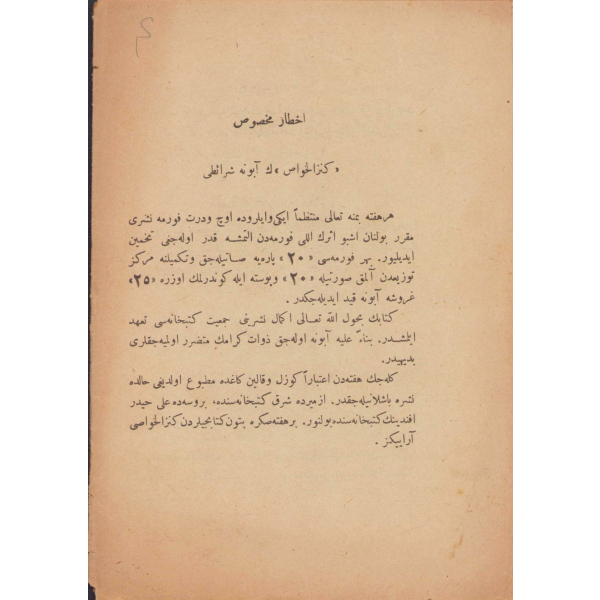 اخطار مخصوص
« كنزالخواص » ك آبونه شرائطی
هر هفته بمنه تعالی منتظماً ایكی وایلروده اوچ ودرت فورمه نشری
مقرر بولنان اشبو اثرك اللی فورمه‌دن التمشه قدر اوله‌جغی تخمین
ایدیلیور. بهر فورمه‌سی «٢٠» پاره‌یه صاتیله‌جق وتكمیلنه مركز
توزیعدن آلمق صورتیله «٢٠» وپوسته ایله كوندرلمك اوزره «٢٥»
غروشه آبونه قید ایدیله‌جكدر .
كتابك بحول الله تعالی اكمال نشرینی جمعیت كتبخانه‌سی تعهد
ایلمشدر. بناءً علیه آبونه اوله‌جق ذوات كرامك متضرر اولمیه‌جقلری
بدیهیدر.
كله‌جك هفته‌دن اعتباراً كوزل وقالین كاغده مطبوع اولدیغی حالده
نشره باشلانیله‌جقدر. ازمیرده شرق كتبخانه‌سنده، بروسه‌ده علی حیدر
افندینك كتبخانه‌سنده بولنور. بر هفته صكره بتون كتابجیلردن كنزالخواصی
آرایكز .